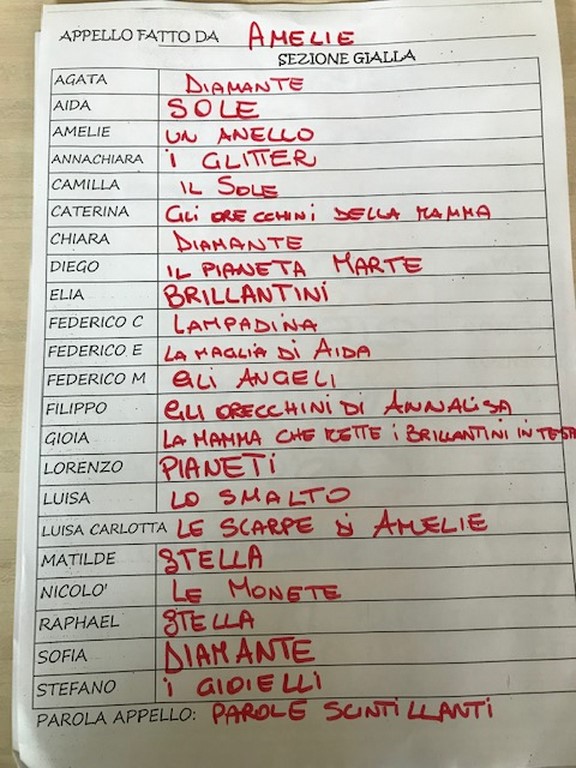 APPELLO FATTO DA AMELIE
SEZIONE GIALLA
AGATA DIAMANTE
AIDA SOLE
AMELIE UN ANELLO
ANNACHIARA I GLITTER
CAMILLA IL SOLE
CATERINA GLI ORECCHINI DELLA MAMMA
CHIARA DIAMANTE
DIEGO IL PIANETA MARTE
ELIA BRILLANTINI
FEDERICO C LAMPADINA
FEDERICO E LA MAGLIA DI AIDA
FEDERICO M GLI ANGELI
FILIPPO GLI ORECCHINI DI ANNALISA
GIOIA LA MAMMA CHE METTE I BRILLANTINI IN TESTA
LORENZO PIANETI
LUISA LO SMALTO
LUISA CARLOTTA LE SCARPE DI AMELIE
MATILDE STELLA
NICOLO' LE MONETE
RAPHAEL STELLA
SOFIA DIAMANTE
STEFANO I GIOIELLI
PAROLA APPELLO: PAROLE SCINTILLANTI